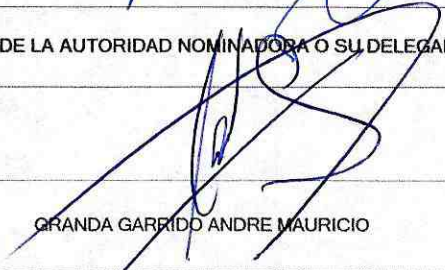 DE LA AUTORIDAD NOMINADORA O SU DELEGA
GRANDA GARRIDO ANDRE MAURICIO